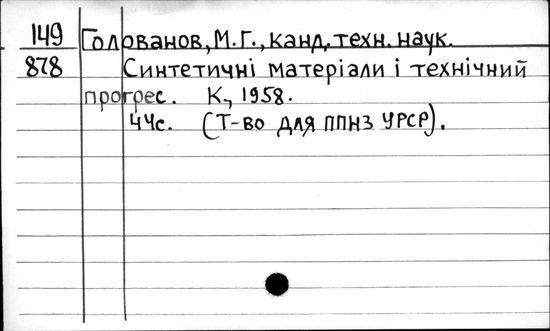 149 Голованов, М.Г., канд. техн. наук.
878 Синтетичні матеріали і технічний
прогрес. К., 1958.
44с. (Т-во для ППНЗ УРСР).